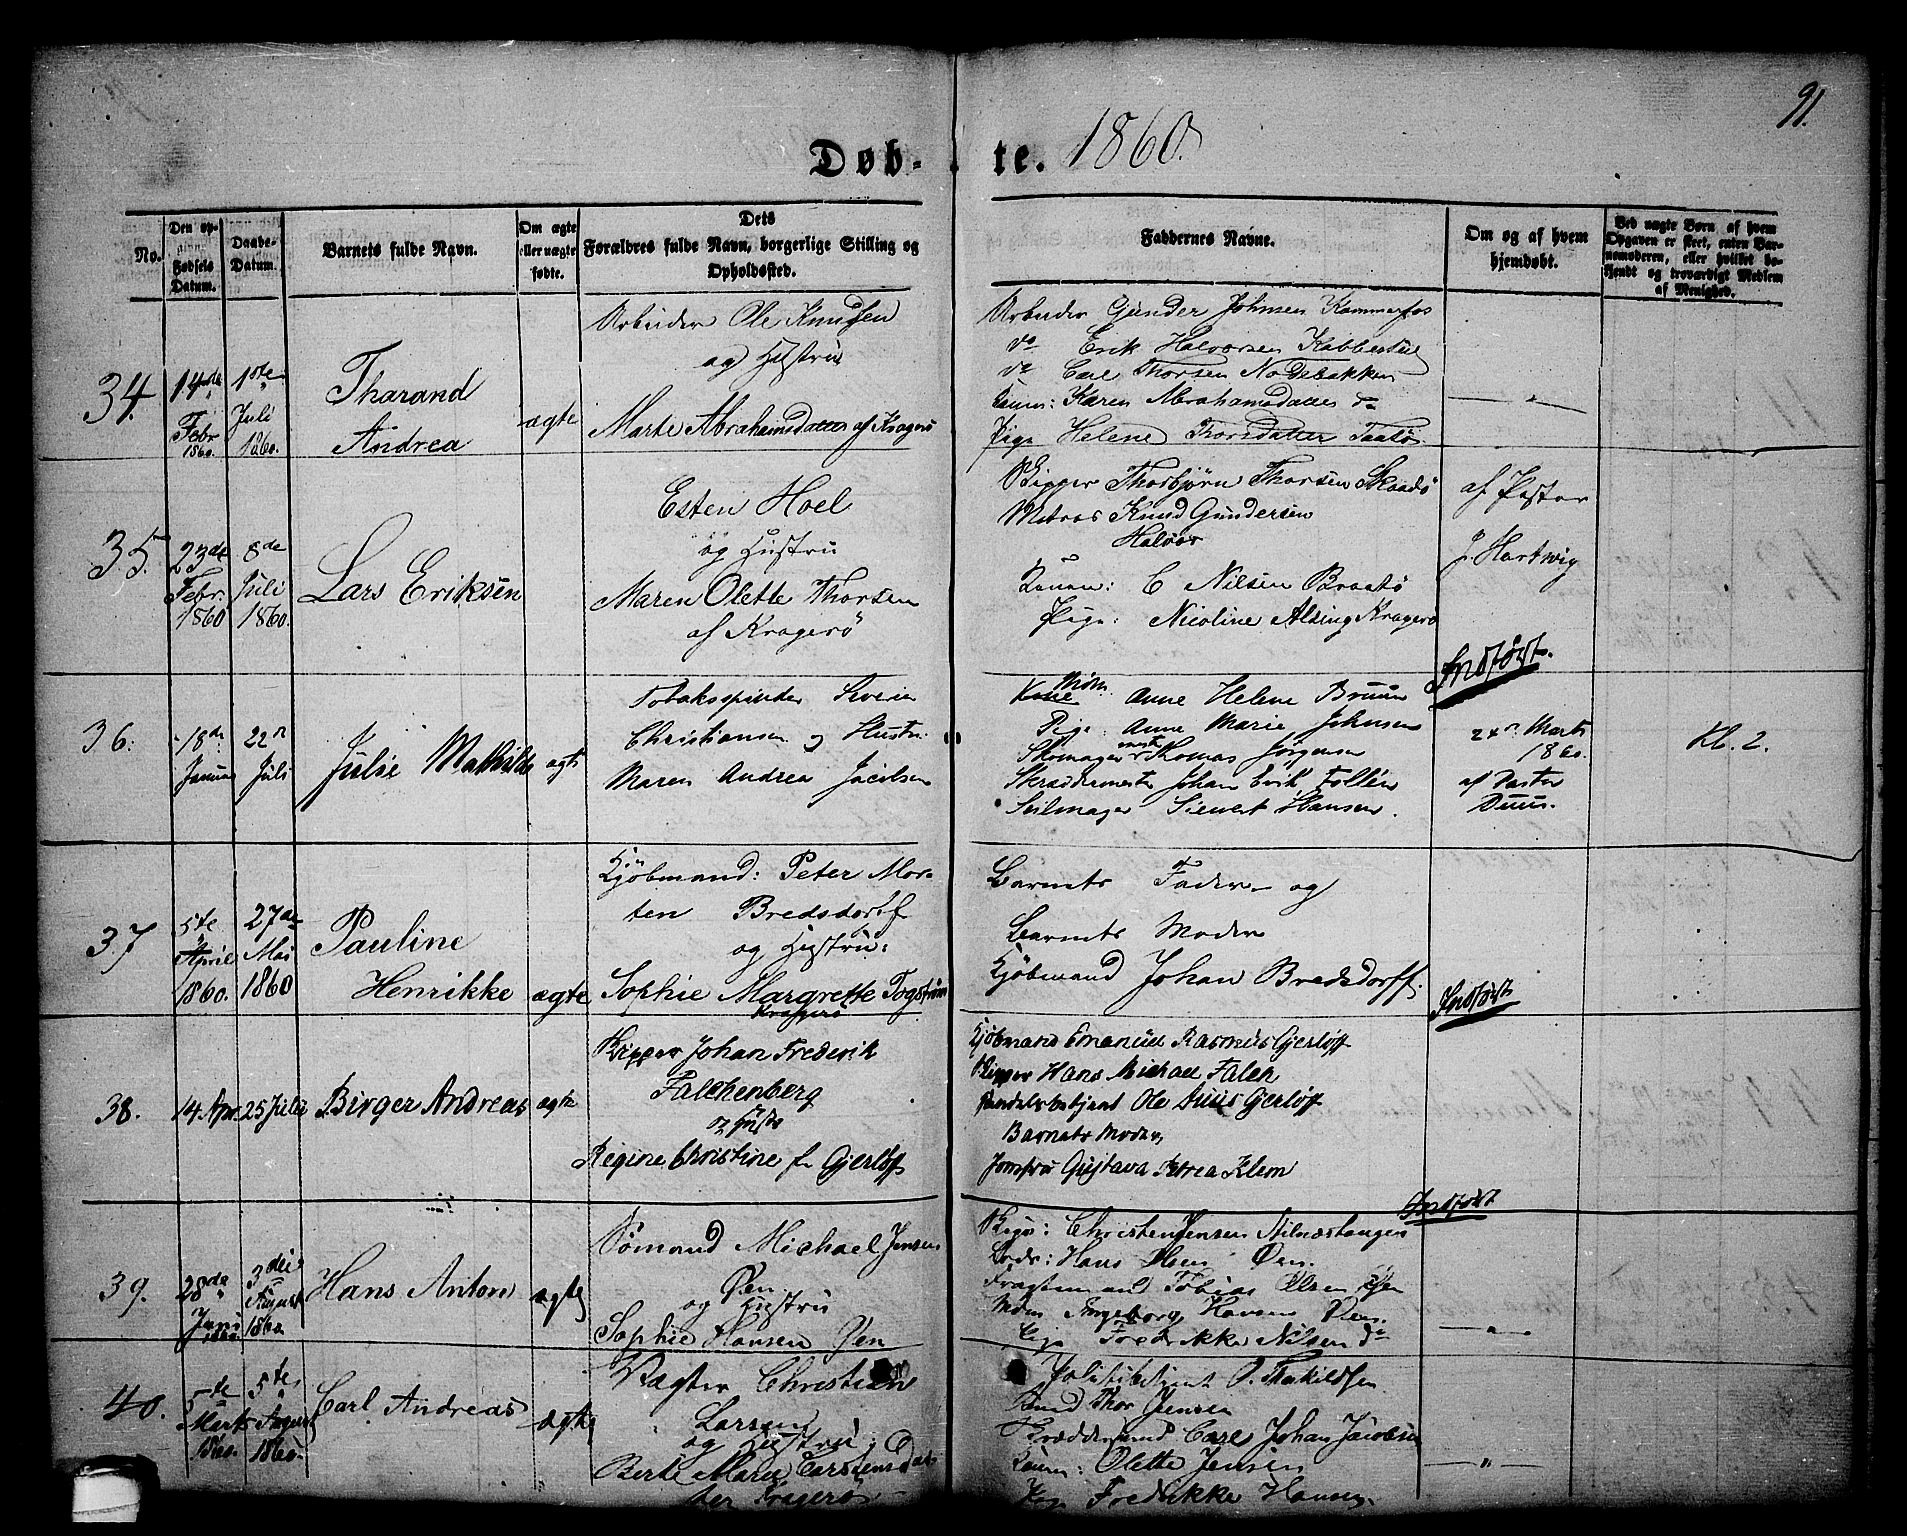 91.
Døb- te. 1860.
No.
Den op-
givne
Fødsels
Datum.
Daabs-
Datum.
Barnets fulde Navn.
Om ægte
eller uægte
fødte.
Dets
Forældres fulde Navn, borgerlige Stilling og
Opholdssted.
Faddernes Navne.
Om og af hvem
hjemdøbt.
Ved uægte Børn af hvem
Opgaven er skeet, enten Bar-
nemoderen, eller hvilket be-
kjendt og troværdigt Medlem
af Menighed.
34.
14de
Febr
1860.
1ste
Juli
1860.
Tharand
Andrea
ægte
Arbeider Ole Knudsen
og Hustru
Marte Abrahamsdatter af Kragerø
Arbeider Gunder Johnsen Kammerfos
do Erik Halvorsen Kabbestad
do Carl Thorsen Nodebakken
Karen Abrahamsdatter do
Pige Helene Thorsdatter Taatø
— " —
35.
23de
Febr.
1860
8de
Juli
1860.
Lars Eriksen
Esten Hoel
og Hustru
Maren Olette Thorsen
af Kragerø
Skipper Thorbjørn Thorsen Skaadø
Matros Knud Gundersen
Halvor
Konen: C Nilsen Braatø
Pige: Nicoline Alsing Kragerø
af Pastor
J Hartwig
Indført.
36.
18de
Januar
22n
Juli
Julie Mathilde
ægte
Tobaksspinder Sverin
Christiansen og Hustru
Maren Andrea Jacobsen
Mdm.
Kone Anne Helene Bruun
Pige: Anne Marie Johnsen
Skomagermester Thomas Jørgensen
Skræddermester Johan Erik Follin
Seilmager Sievert Hansen.
24n Marts
1860.
af Pastor
Duus.
Kl. 2.
37
5te
April
1860.
27de
Mai
1860
Pauline
Henrikke
ægte
Kjøbmand: Peter Mor-
ten Bredsdorff
og Hustru:
Sophie Margrette Togstrøm
Kragerø
Barnets Fader og
Barnets Moder
Kjøbmand Johan Bredsdorff.
Indført
38.
14. Apr.
25 Juli
Birger Andreas
ægte
Skipper Johan Frederik
Falchenberg
og Hustr
Regine Christine f. Gjerløff
Kjøbmand Emanuel Rasmus Gjerløff
Skipper Hans Michael Falch
Handelsbetjent Ole Duus Gjerløff
Barnets Moder,
Jomfru Gustava Petrea Klem
Indført
39.
28de
Juni
1860
3die
August
1860
Hans Anton
ægte
Sømand Michael Jensen
Øen
og Hustru
Sophie Hansen Øen
Christen Jensen Nilnæstangen
Lods: Hans Øen.
Fragtemand Tobias Olsen Øen
Mdm Ingeborg Hansen Øen.
Pige Fredrikke Nilsen do
— " —
40.
5te
Marts
1860.
5te
August
1860.
Carl Andreas
ægte
Vægter Christian
Larsen
og Hustru:
Berte Maren Carstensdat-
ter Kragerø
Politibetjent O. Thorkildsen
Thor Jensen
Skræddersvend Carl Johan Jacobsen
Konen: Olette Jensen
Pige Fredrikke Hansen.
— " —